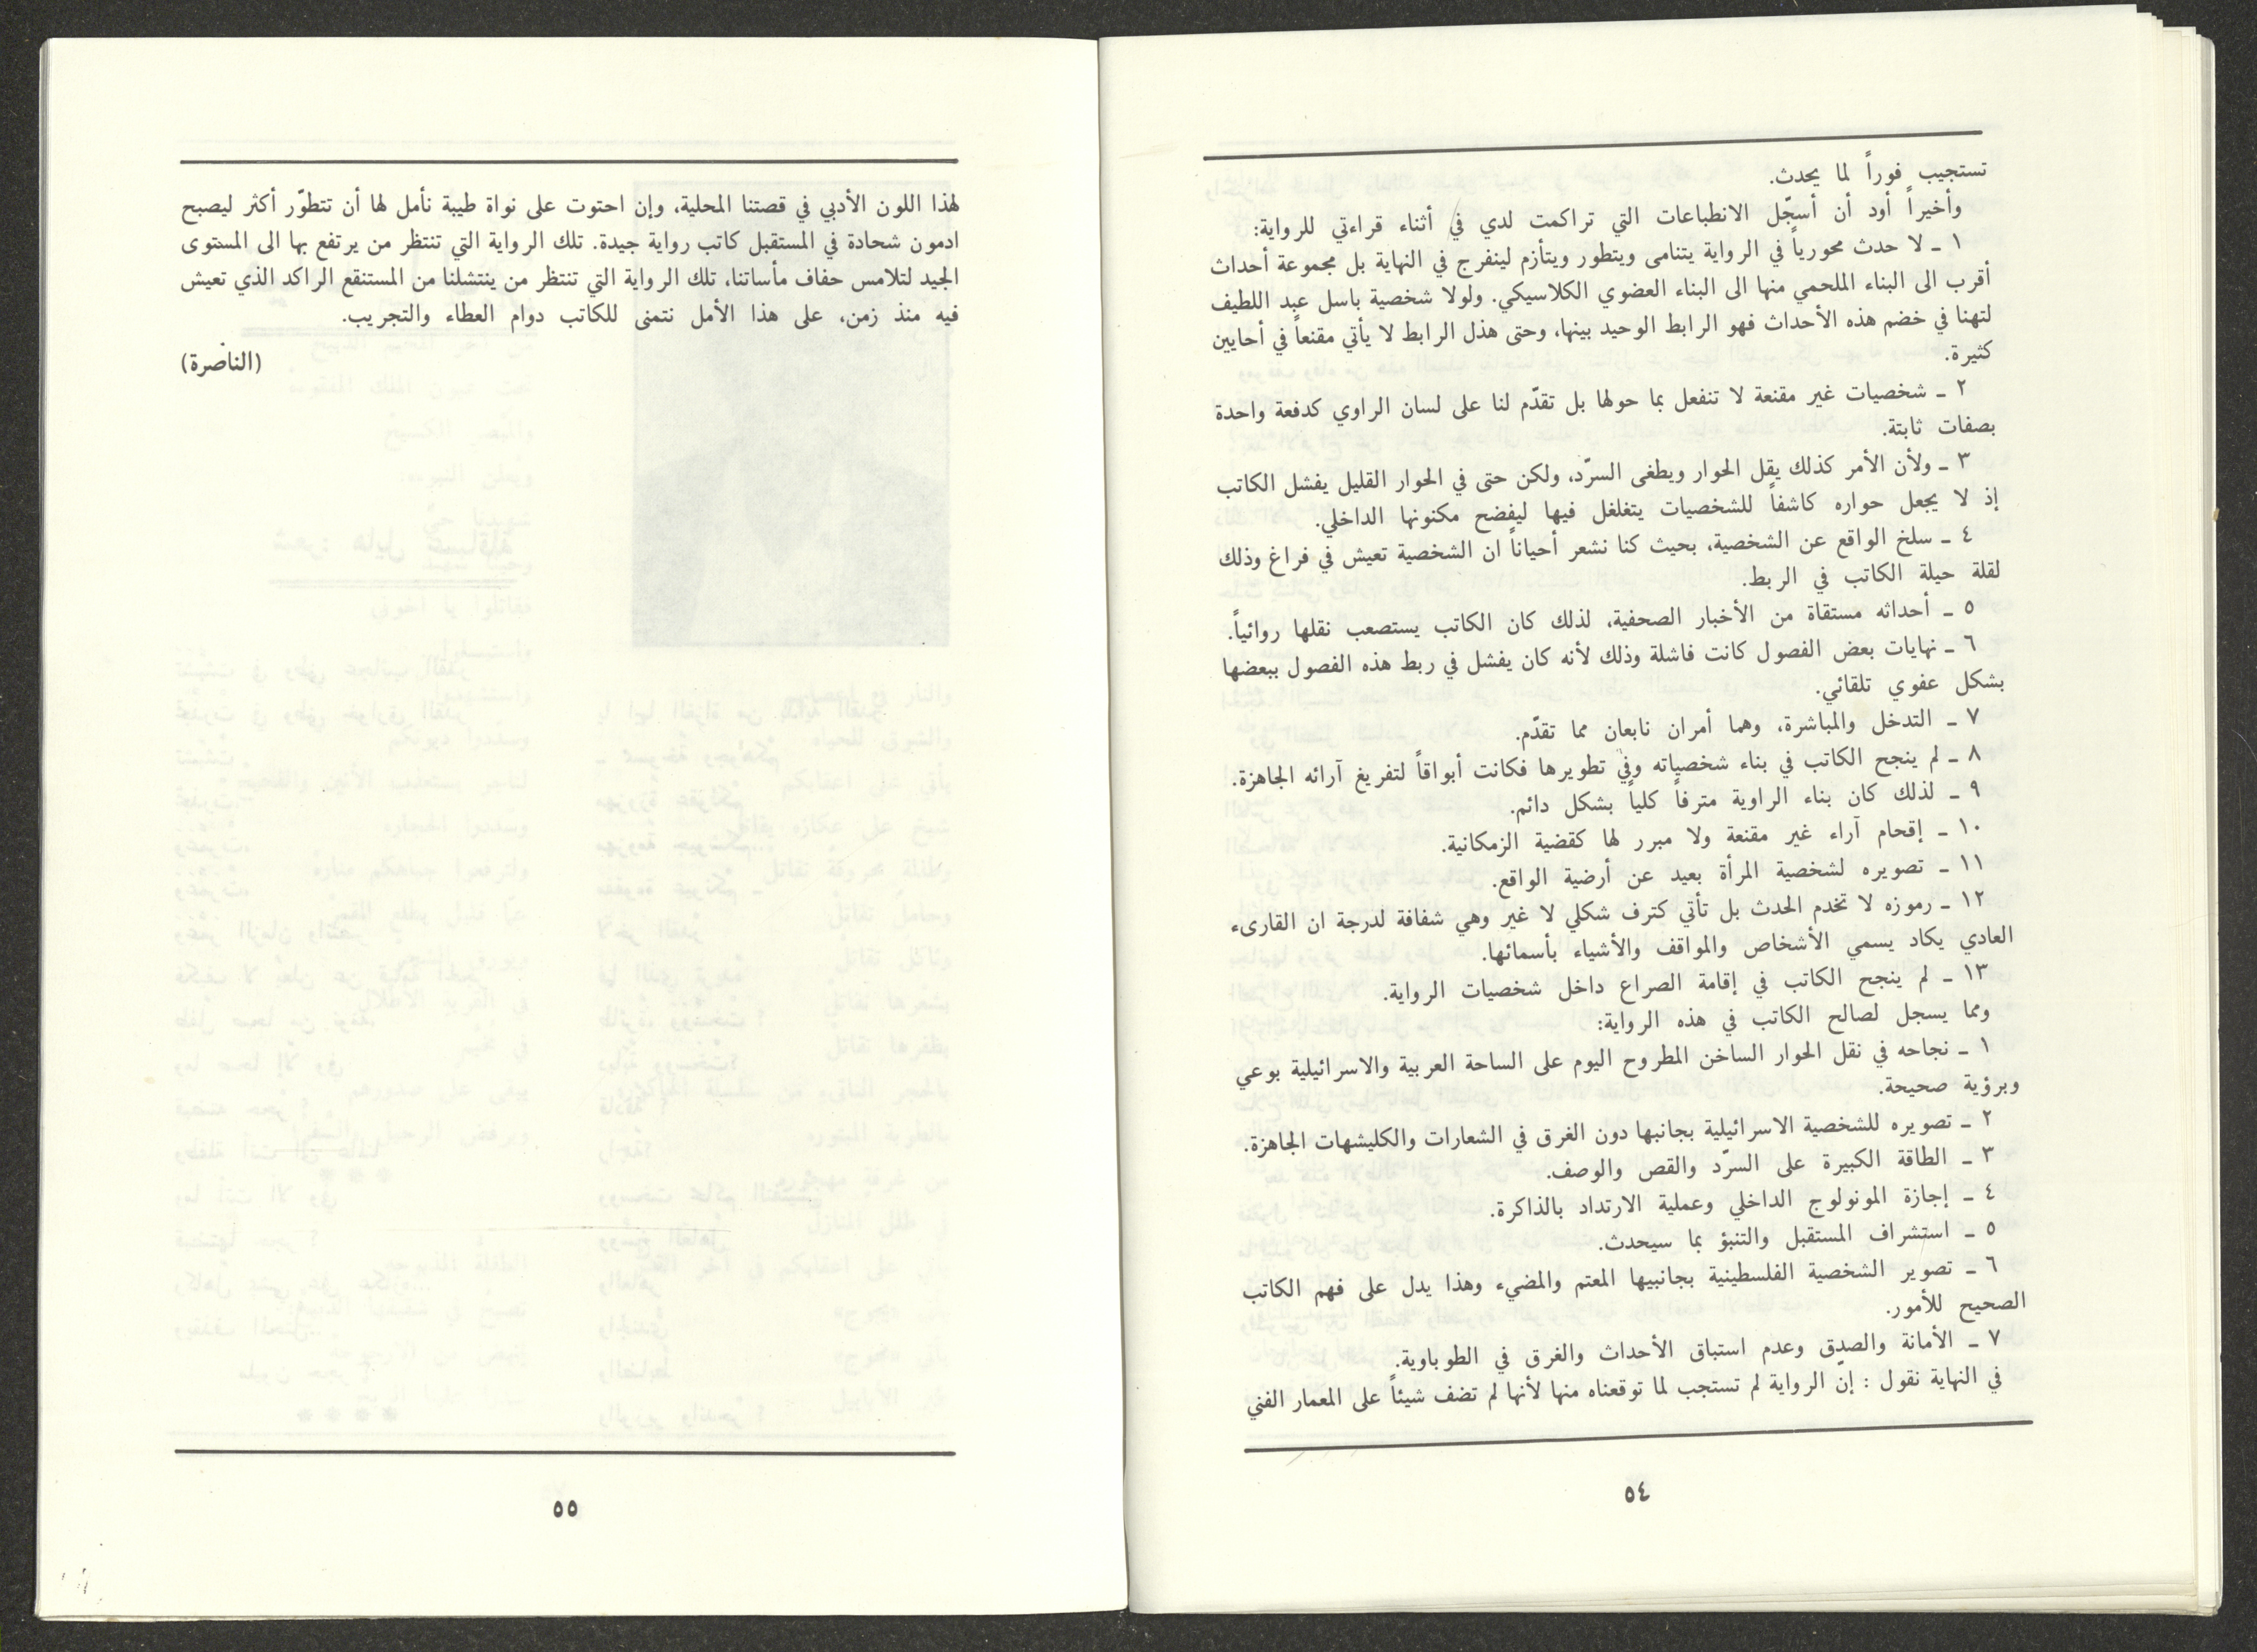 تستجيب فوراً لما يحدث.
وأخيراً أود أن أسجّل الانطباعات التي تراكمت لدي في أثناء قراءتي للرواية:
١ ـ لا حدث محورياً في الرواية يتنامى ويتطور ويتأزم لينفرج في النهاية بل مجموعة أحداث
أقرب الى البناء الملحمي منها الى البناء العضوي الكلاسيكي. ولولا شخصية باسل عبد اللطيف
لتهنا في خضم هذه الأحداث فهو الرابط الوحيد بينها، وحتى هذل الرابط لا يأتي مقنعاً في أحايين
كثيرة.
٢ ـ شخصيات غير مقنعة لا تنفعل بما حولها بل تقدّم لنا على لسان الراوي كدفعة واحدة
بصفات ثابتة.
٣ ـ ولأن الأمر كذلك يقل الحوار ويطغى السرّد، ولكن حتى في الحوار القليل يفشل الكاتب
إذ لا يجعل حواره كاشفاً للشخصيات يتغلغل فيها ليفضح مكنونها الداخلي.
٤ ـ سلخ الواقع عن الشخصية، بحيث كنا نشعر أحياناً ان الشخصية تعيش في فراغ وذلك
لقلة حيلة الكاتب في الربط.
٥ ـ أحداثه مستقاة من الأخبار الصحفية، لذلك كان الكاتب يستصعب نقلها روائياً.
٦ ـ نهايات بعض الفصول كانت فاشلة وذلك لأنه كان يفشل في ربط هذه الفصول ببعضها
بشكل عفوي تلقائي.
٧ ـ التدخل والمباشرة، وهما أمران نابعان مما تقدّم.
٨ ـ لم ينجح الكاتب في بناء شخصياته وفي تطويرها فكانت أبواقاً لتفريغ آرائه الجاهزة.
٩ ـ لذلك كان بناء الراوية مترفاً كلياً بشكل دائم.
١٠ ـ إقحام آراء غير مقنعة ولا مبرر لها كقضية الزمكانية.
١١ ـ تصويره لشخصية المرأة بعيد عن أرضية الواقع.
١٢ ـ رموزه لا تخدم الحدث بل تأتي كترف شكلي لا غير وهي شفافة لدرجة ان القارىء
العادي يكاد يسمي الأشخاص والمواقف والأشياء بأسمائها.
١٣ ـ لم ينجح الكاتب في إقامة الصراع داخل شخصيات الرواية.
ومما يسجل لصالح الكاتب في هذه الرواية:
١ ـ نجاحه في نقل الحوار الساخن المطروح اليوم على الساحة العربية والاسرائيلية بوعي
وبرؤية صحيحة.
٢ ـ تصويره للشخصية الاسرائيلية بجانبها دون الغرق في الشعارات والكليشهات الجاهزة.
٣ ـ الطاقة الكبيرة على السرّد والقص والوصف.
٤ ـ إجازة المونولوج الداخلي وعملية الارتداد بالذاكرة.
٥ ـ استشراف المستقبل والتنبؤ بما سيحدث.
٦ ـ تصوير الشخصية الفلسطينية بجانبيها المعتم والمضيء وهذا يدل على فهم الكاتب
الصحيح للأمور.
٧ ـ الأمانة والصدق وعدم استباق الأحداث والغرق في الطوباوية.
في النهاية نقول : إنّ الرواية لم تستجب لما توقعناه منها لأنها لم تضف شيئاً على المعمار الفني
٥٤
لهذا اللون الأدبي في قصتنا المحلية، وإن احتوت على نواة طيبة نأمل لها أن تتطوّر أكثر ليصبح
ادمون شحادة في المستقبل كاتب رواية جيدة. تلك الرواية التي تنتظر من يرتفع بها الى المستوى
الجيد لتلامس حفاف مأساتنا، تلك الرواية التي تنتظر من ينتشلنا من المستنقع الراكد الذي تعيش
فيه منذ زمن، على هذا الأمل نتمنى للكاتب دوام العطاء والتجريب.
(الناصرة)
٥٥